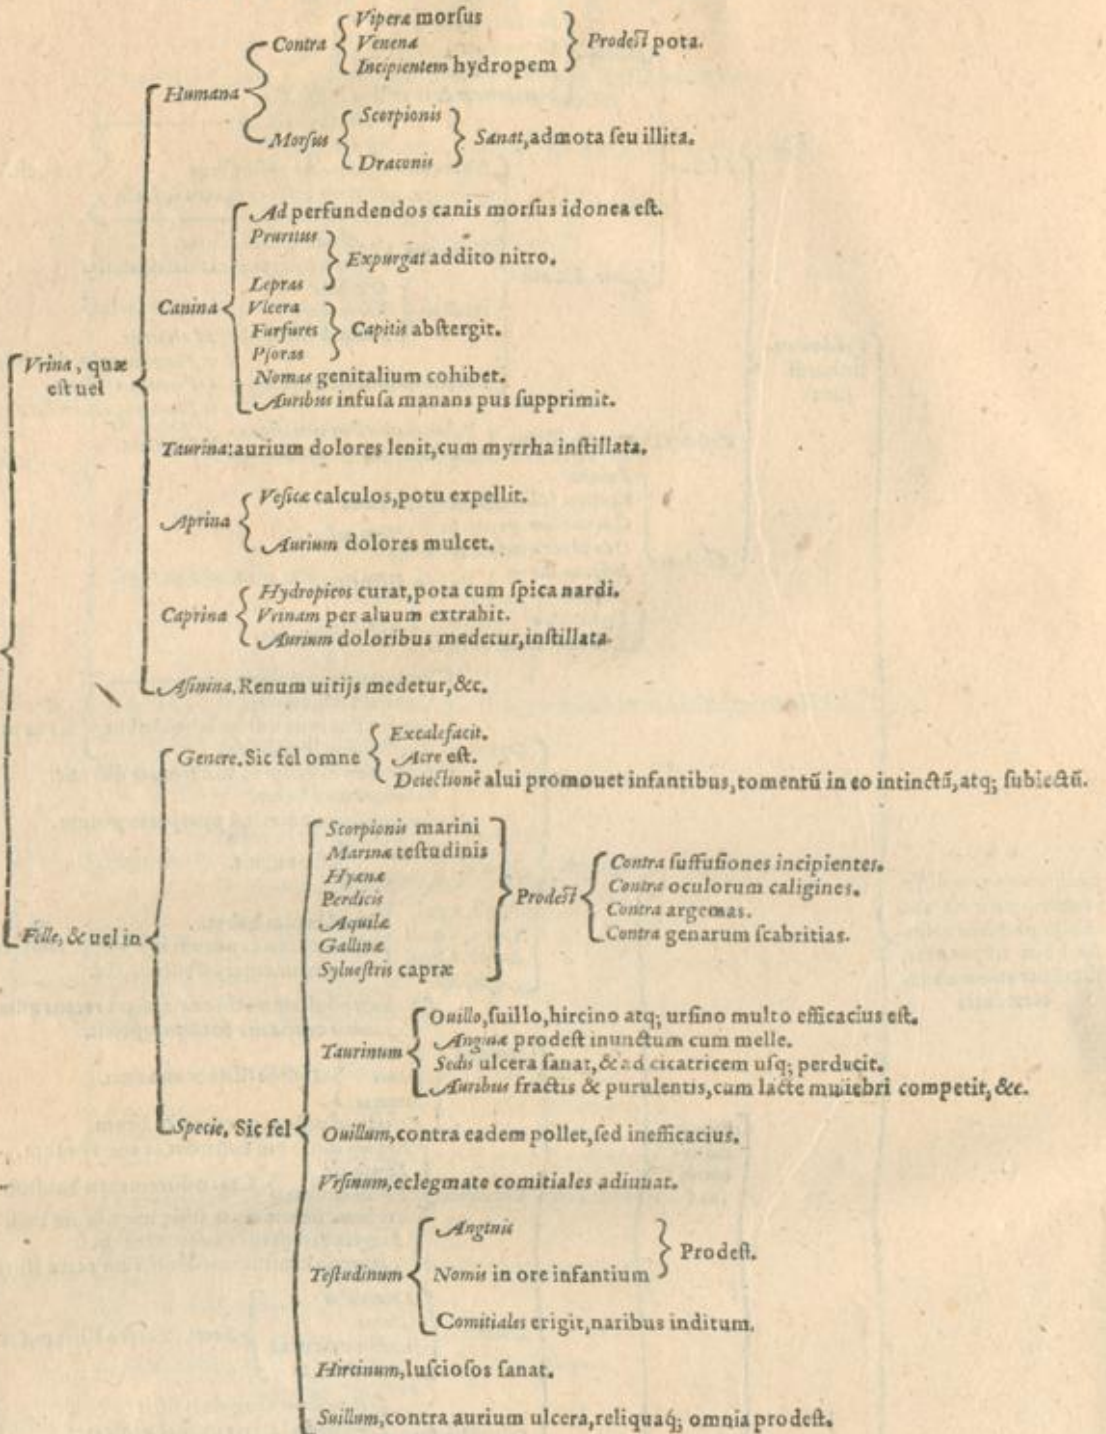 Viperæ morſus
Contra Venena Prodeſt pota.
Incipientem hydropem
Humana
Scorpionis
Morſus Sanat, admota ſeu illita.
Draconis
Ad perfundendos canis morſus idonea eſt.
Pruritus
Expurgat addito nitro.
Lepras
Canina Vlcera
Furfures Capitis abſtergit.
Pſoras
Nomas genitalium cohibet.
Auribus infuſa manans pus ſupprimit.
Vrina, quæ
eſt uel
Taurina: aurium dolores lenit, cum myrrha inſtillata.
Veſicæ calculos, potu expellit.
Aprina
Aurium dolores mulcet.
Hydropicos curat, pota cum ſpica nardi.
Caprina Vrinam per aluum extrahit.
Aurium doloribus medetur, inſtillata.
Aſinina. Renum uitijs medetur, &c.
Excalefacit.
Genere. Sic fel omne Acre eſt.
Deiectionē alui promouet infantibus, tomentū in eo intinctū, atq; ſubiectū.
Scorpionis marini
Marinæ teſtudinis
Hyænæ
Perdicis
Aquilæ
Gallinæ
Sylueſtris capræ
Prodeſt
Contra ſuffuſiones incipientes.
Contra oculorum caligines.
Contra argemas.
Contra genarum ſcabritias.
Felle, & uel in
Ouillo, ſuillo, hircino atq; urſino multo efficacius eſt.
Anginæ prodeſt inunctum cum melle.
Taurinum
Sedis ulcera ſanat, & ad cicatricem uſq; perducit.
Auribus fractis & purulentis, cum lacte muliebri competit, &c.
Specie. Sic fel
Ouillum, contra eadem pollet, ſed inefficacius.
Vrſinum, eclegmate comitiales adiuuat.
Anginis
Prodeſt.
Teſtudinum Nomis in ore infantium
Comitiales erigit, naribus inditum.
Hircinum, luſcioſos ſanat.
Suillum, contra aurium ulcera, reliquaq́; omnia prodeſt.